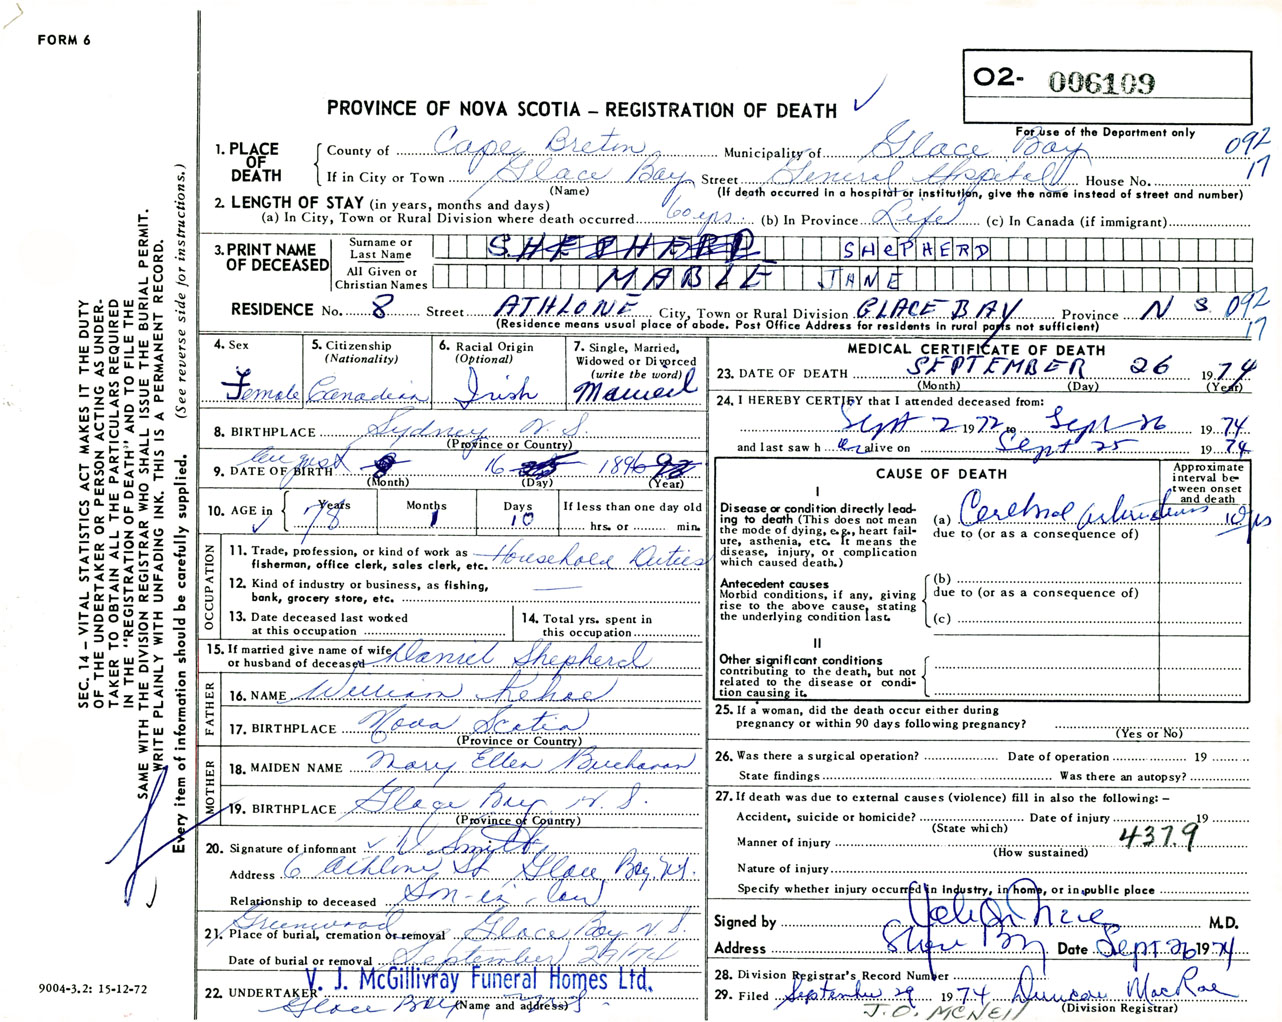 FORM 6
O2- 006109
PROVINCE OF NOVA SCOTIA – REGISTRATION OF DEATH
For use of the Department only
092
17
1. PLACE OF DEATH
County of Cape Breton Municipality of Glace Bay
If in City or Town Glace Bay Street General Hospital House No.
(Name) (If death occurred in a hospital or institution, give the name instead of street and number)
2. LENGTH OF STAY (in years, months and days)
(a) In City, Town or Rural Division where death occurred 60 yrs (b) In Province Life (c) In Canada (if immigrant)
3. PRINT NAME OF DECEASED
Surname or Last Name SHEPHERD SHEPHERD
All Given or Christian Names MABLE JANE
RESIDENCE No. 8 Street ATHLONE City, Town or Rural Division GLACE BAY Province N S 092
17
(Residence means usual place of abode. Post Office Address for residents in rural parts not sufficient)
4. Sex
Female
5. Citizenship
(Nationality)
Canadian
6. Racial Origin
(Optional)
Irish
7. Single, Married,
Widowed or Divorced
(write the word)
Married
8. BIRTHPLACE Sydney N. S.
(Province or Country)
9. DATE OF BIRTH August 16 1896
(Month) (Day) (Year)
10. AGE in
Years Months Days If less than one day old
78 1 10 hrs. or min.
OCCUPATION
11. Trade, profession, or kind of work as
fisherman, office clerk, sales clerk, etc. Household Duties
12. Kind of industry or business, as fishing,
bank, grocery store, etc.
13. Date deceased last worked
at this occupation
14. Total yrs. spent in
this occupation
15. If married give name of wife
or husband of deceased Daniel Shepherd
FATHER
16. NAME William Kehoe
17. BIRTHPLACE Nova Scotia
(Province or Country)
MOTHER
18. MAIDEN NAME Mary Ellen Buchanan
19. BIRTHPLACE Glace Bay N. S.
(Province or Country)
20. Signature of informant V. Smyth
Address 6 Athlone St Glace Bay N.S.
Relationship to deceased Son-in-law
21. Place of burial, cremation or removal Greenwood Glace Bay N. S.
Date of burial or removal September 29/74
22. UNDERTAKER V. J. McGillivray Funeral Homes Ltd.
Glace Bay N.S.
(Name and address)
MEDICAL CERTIFICATE OF DEATH
23. DATE OF DEATH SEPTEMBER 26 1974
(Month) (Day) (Year)
24. I HEREBY CERTIFY that I attended deceased from:
Sept 2 1972 Sept 26 1974
and last saw her alive on Sept 25 1974
CAUSE OF DEATH
Approximate interval between onset and death
I
Disease or condition directly lead-
ing to death (This does not mean
the mode of dying, e.g., heart fail-
ure, asthenia, etc. It means the
disease, injury, or complication
which caused death.)
(a) Cerebral 10 yrs
due to (or as a consequence of)
Antecedent causes
Morbid conditions, if any, giving
rise to the above cause, stating
the underlying condition last.
(b)
due to (or as a consequence of)
(c)
II
Other significant conditions
contributing to the death, but not
related to the disease or condi-
tion causing it.
25. If a woman, did the death occur either during
pregnancy or within 90 days following pregnancy?
(Yes or No)
26. Was there a surgical operation? Date of operation 19
State findings Was there an autopsy?
27. If death was due to external causes (violence) fill in also the following: –
Accident, suicide or homicide? Date of injury 19
(State which)
Manner of injury 4379
(How sustained)
Nature of injury
Specify whether injury occurred in Industry, in home, or in public place
Signed by M.D.
Address Date Sept. 26 1974
28. Division Registrar's Record Number
29. Filed September 29 1974 Duncan MacRae
(Division Registrar)
J. O. MCNEIL
SEC. 14 – VITAL STATISTICS ACT MAKES IT THE DUTY
OF THE UNDERTAKER OR PERSON ACTING AS UNDER-
TAKER TO OBTAIN ALL THE PARTICULARS REQUIRED
IN THE "REGISTRATION OF DEATH" AND TO FILE THE
SAME WITH THE DIVISION REGISTRAR WHO SHALL ISSUE THE BURIAL PERMIT.
WRITE PLAINLY WITH UNFADING INK. THIS IS A PERMANENT RECORD.
Every item of information should be carefully supplied. (See reverse side for instructions.)
9004-3.2: 15-12-72